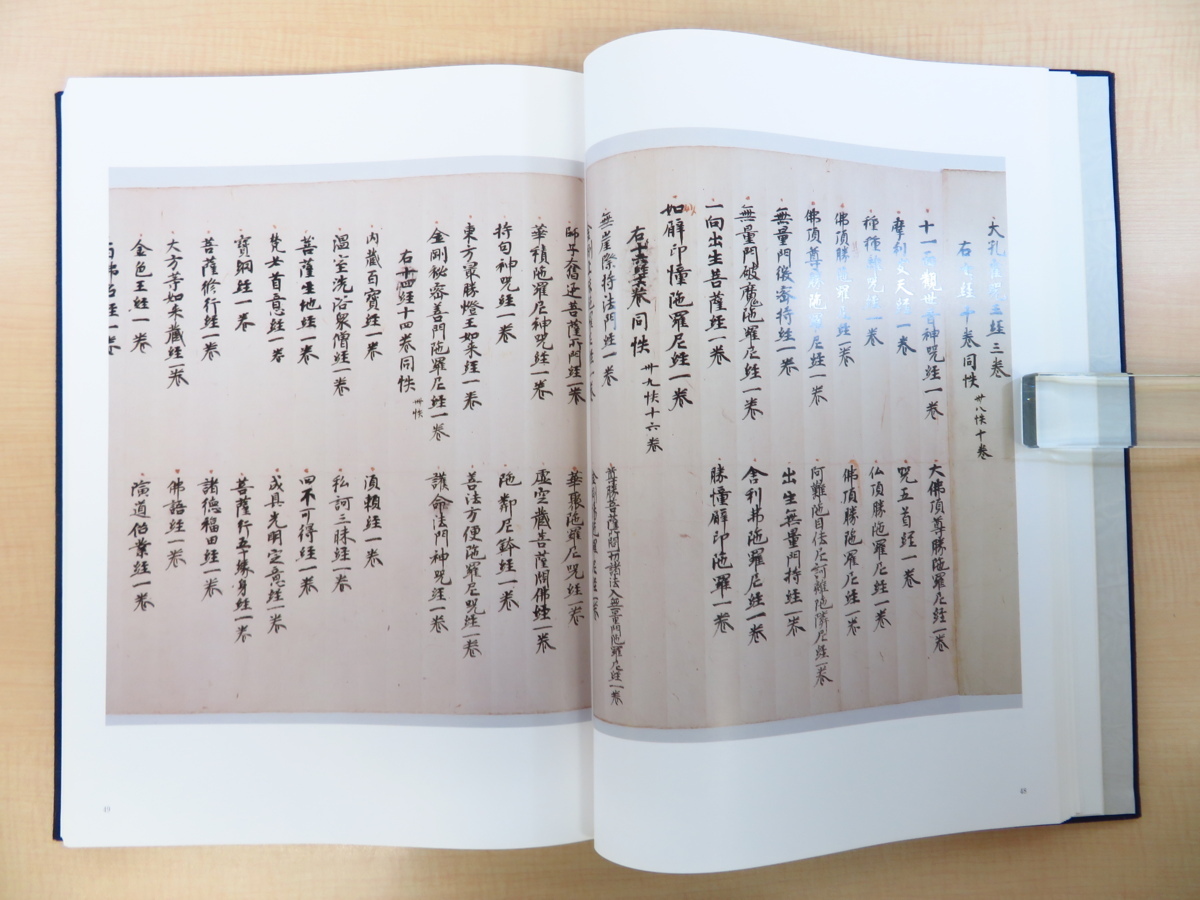 大孔雀咒王経三巻
右七経十巻同帙 卅八帙十巻
十一面觀世音神咒経一巻
大佛頂尊勝陁羅尼経一巻
摩利支天経一巻
咒五首経一巻
種種雜咒経一巻
仏頂勝陁羅尼経一巻
佛頂勝陁羅尼経一巻
佛頂勝陁羅尼経一巻
佛頂尊勝陁羅尼経一巻
阿難陁目佉尼訶離陁隣尼経一巻
無量門微密持経一巻
出生無量門持経一巻
無量門破魔陁羅尼経一巻
舎利弗陁羅尼経一巻
一向出生菩薩経一巻
勝幢臂印陁羅一巻
妙臂印幢陁羅尼経一巻
巻同帙 卅九帙十六巻
無崖際持法門経一巻
尊勝菩薩所問一切諸法入無量門陁羅尼経一巻
師子奮迅菩薩所門経一巻
華聚陁羅尼咒経一巻
華積陁羅尼神咒経一巻
虚空蔵菩薩問佛経一巻
持句神咒経一巻
陁鄰尼鉢経一巻
東方冣勝燈王如来経一巻
善法方便陁羅尼咒経一巻
金剛秘密善門陁羅尼経一巻
護命法門神咒経一巻
右十四経十四巻同帙 卌帙
内蔵百寳経一巻
湏頼経一巻
温室洗浴衆僧経一巻
私訶三昧経一巻
菩薩生地経一巻
四不可得経一巻
梵女首意経一巻
成具光明定意経一巻
寳網経一巻
菩薩行五十縁身経一巻
菩薩修行経一巻
諸徳福田経一巻
大方等如来蔵経一巻
佛語経一巻
金色王経一巻
演道俗業経一巻
百佛名経一巻
49
48